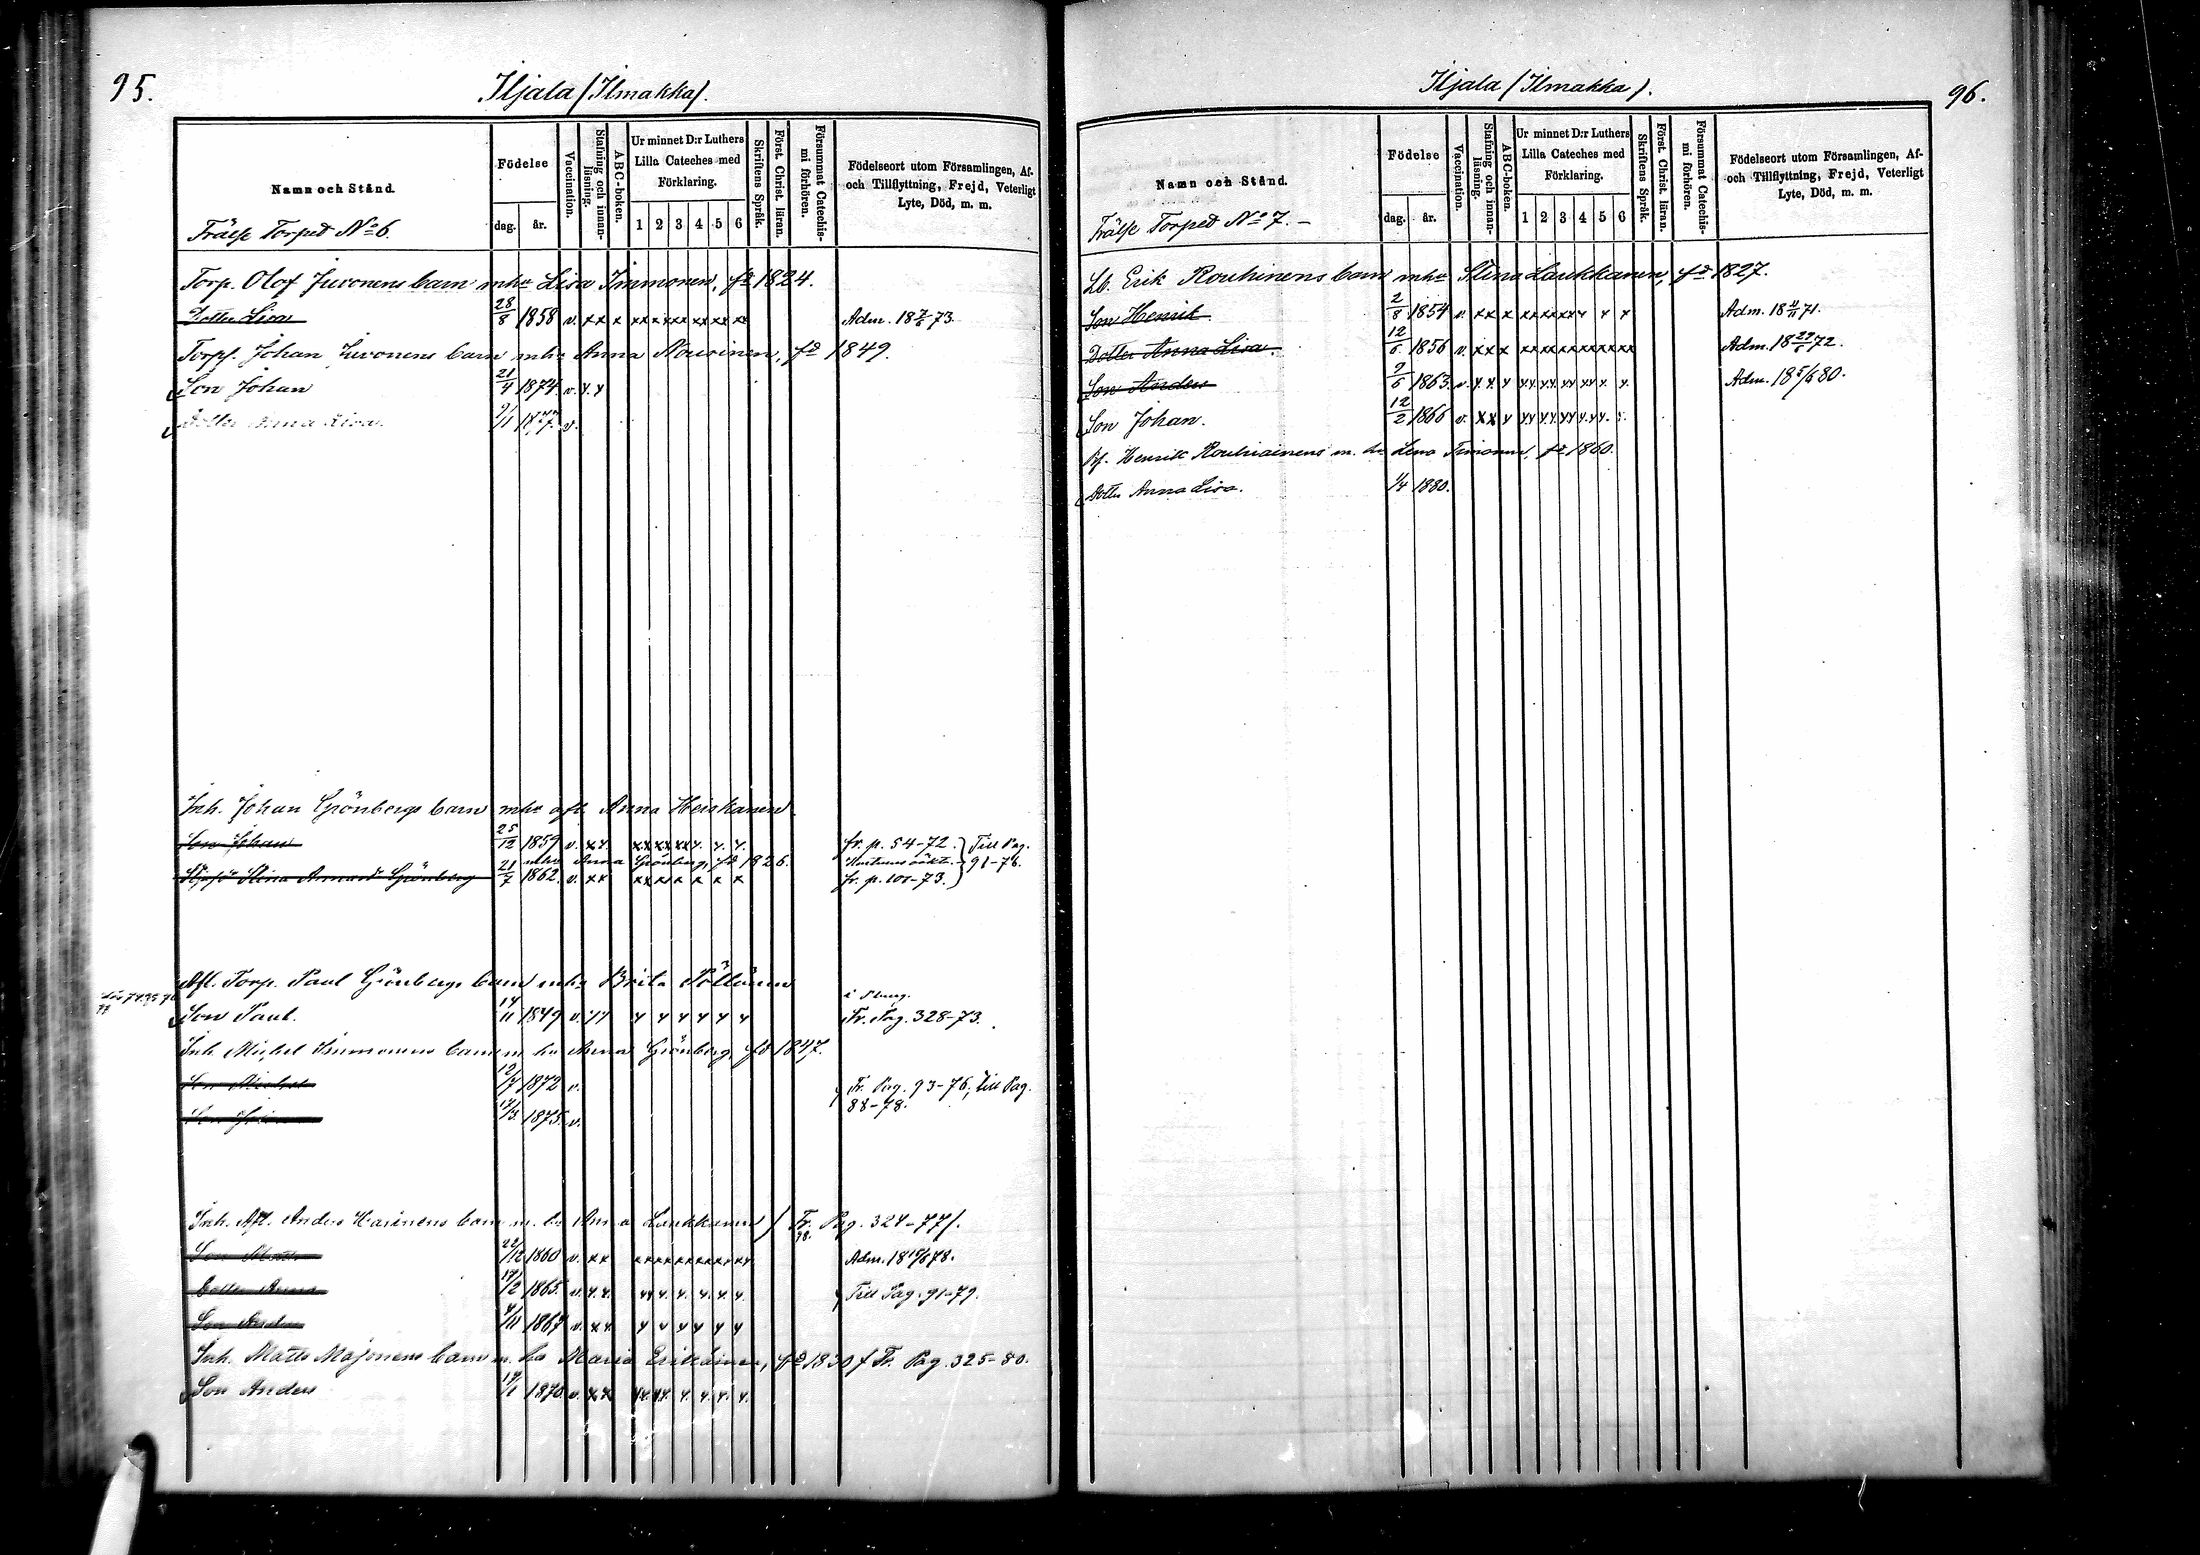 95.
Iljala (Ilmakka).
Namn och Stånd.
Födelse
dag.
år.
Vaccination.
Stafning och innanläsning.
ABC-boken.
Ur minnet D:r Luthers Lilla Cateches med Förklaring.
1 2 3 4 5 6
Skriftens Språk.
Först. Christ. läran.
Försummat Catechismi förhören.
Födelseort utom Församlingen, Af- och Tillflyttning, Frejd, Veterligt Lyte, Död, m. m.
Frälse Torped No 6.
Torp. Olof Juvonens barn mhu Lisa Immonen, fd 1824.
Dotter Lisa 28/8 1858 v. x x x xx x xx xx xx xx Adm. 18 7/6 73.
Torpf. Johan Juvonens barn mhu Anna Nousinen, fd 1849.
Son Johan 21/4 1874. v. x x
Dotter Anna Lisa. 9/11 1877. v.
Inh. Johan Grönbergs barn mhu afl. Anna Heiskanen
Son Johan 25/12 1859 v. x x. xx xx xx x. x. x. fr. p. 54-72. Till Pag.
mhu Anna Grönberg, fd 1826. 91-76.
Stina Grönberg 21/7 1862. v. x x xx xx x x x x fr. p. 100-73.
Afl. Torp. Paul Grönbergs barn mhu Brita Pöllänen
Son Paul. 14/11 1849 v. x x x x x x x x Fr. Pag. 328-73.
Inh. Michel Immonens barn m. hu Anna Grönberg, fd 1847.
Son Michel 12/7 1872 v. Fr. Pag. 93-76, Till Pag.
88-78.
Son Johan 17/3 1875. v.
Inh. Afl. Anders Karinens barn m. hu Anna Laukkanen (Fr. Pag. 324-77).
Son Matts 22/12 1860 v. x x xx xx xx xx xx x Adm. 18 78.
Dotter Anna 17/2 1865. v. x x. xx x. x. x. x. x. Till Pag. 91-79.
Son Anders 4/11 1867 v. x x x x x x x x
Inh. Matts Majonens barn m. hu Maria Erikäinen, fd 1830 f Fr. Pag. 325-80.
Son Anders 1870 v. x x xx. xx. x. x. x. x.
96.
Iljala (Ilmakka).
Namn och Stånd.
Födelse
dag.
år.
Vaccination.
Stafning och innanläsning.
ABC-boken.
Ur minnet D:r Luthers Lilla Cateches med Förklaring.
1 2 3 4 5 6
Skriftens Språk.
Först. Christ. läran.
Försummat Catechismi förhören.
Födelseort utom Församlingen, Af- och Tillflyttning, Frejd, Veterligt Lyte, Död, m. m.
Frälse Torped No 7.
Lb. Erik Rouhinens barn mhu Stina Laukkanen, fd 1827.
Son Henrik 2/8 1854 v. x x x x xx xx x x x Adm. 18 71.
Dotter Anna Lisa. 12/6 1856 v. x x x xx xx xx xx xx xx Adm. 18 72.
Son Anders 9/6 1863. v. x. x. x xx xx xx xx x. x. Adm. 18 5/6 80.
Son Johan. 12/2 1866 v. x x x xx xx xx x. xx.
Bf. Henrik Rouhiainens m. hu Lena Timonen, fd 1860.
Dotter Anna Lisa. 1/4 1880.